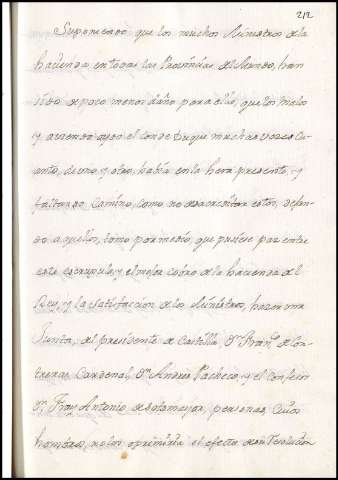 212
Suponiendo que los muchos Ministros de la
hacienda en todas las Provincias del Mundo, han
sido de poco menos daño para ella, que los malos
y aviendo oydo el conde Duque muchas vezes cu
anto, de uno, y otro, había en la hera presente, y
faltando camino, como no desacreditar estos, dejan
do aquellos, como por medio, que pusiese paz entre
este escrupulo, y el mejor cobro de la hacienda del
Rey, y la satisfaccion de los Ministros, hazer una
Junta, del presidente de Castilla, Dn. Franco. de Con
treras Cardenal, Dn. Andres Pacheco, y el Confesor
Dn. Fray Antonio de Sotomayor, personas, cuios
hombros, no los oprimiria el efecto de su resolucion